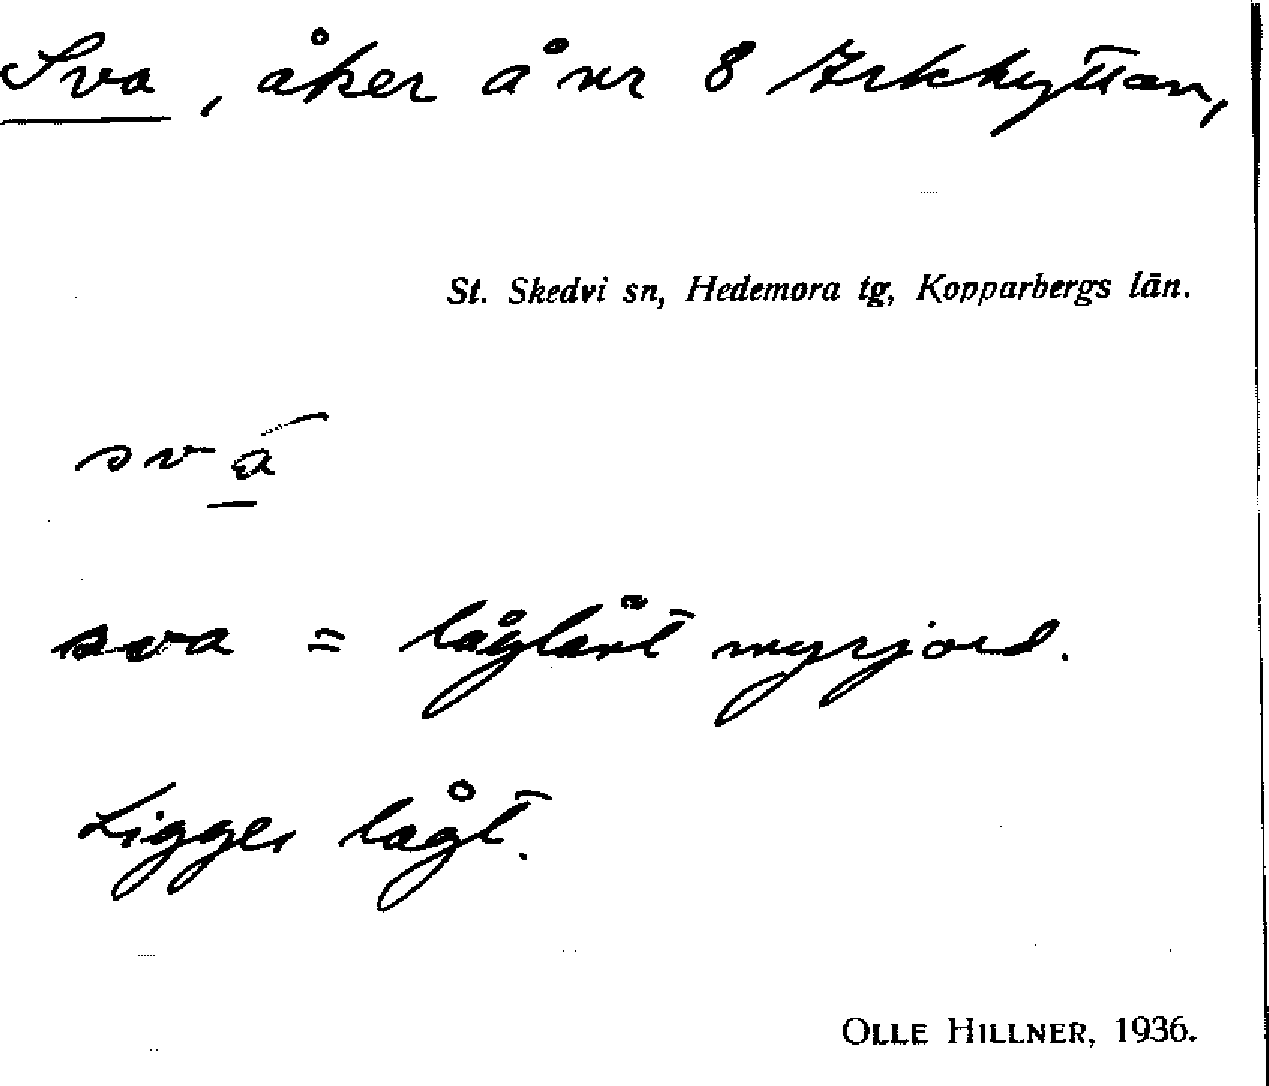 Sva, åker å nr 8 Arkhyttan,
St. Skedvi sn, Hedemora tg, Kopparbergs län.
svá
sva = låglänt myrjord.
Ligger lågt.
OLLE HILLNER, 1936.